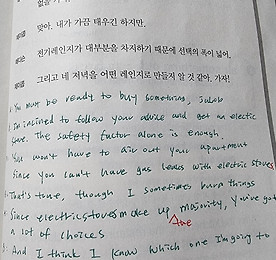 맞아. 내가 가끔 태우긴 하지만.
전기레인지가 대부분을 차지하기 때문에 선택의 폭이 넓어.
그리고 네 저녁을 어떤 레인지로 만들지 알 것 같아. 가자!
You must be ready to buy something, Jacob
I'm inclined to follow your advice and get an electric
stove. The safety factor alone is enough.
You won't have to air out your apartment
since you can't have gas leaks with electric stoves
That's true, though I sometimes burn things
Since electric stoves make up majority, you've got
the
a lot of choices
And I think I know which one I'm going to